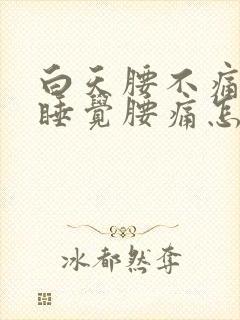 白天腰不痛
睡覺腰痛怎
冰都然奪